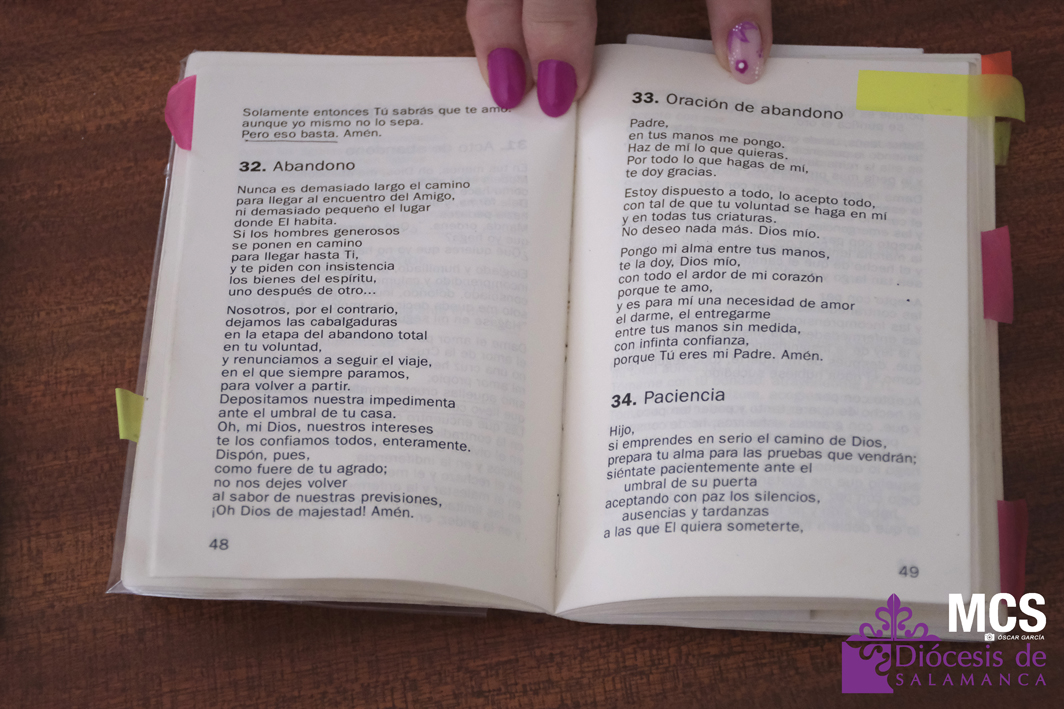 Solamente entonces Tú sabrás que te amo.
aunque yo mismo no lo sepa.
Pero eso basta. Amén.
32. Abandono
Nunca es demasiado largo el camino
para llegar al encuentro del Amigo,
ni demasiado pequeño el lugar
donde El habita.
Si los hombres generosos
se ponen en camino
para llegar hasta Ti,
y te piden con insistencia
los bienes del espíritu,
uno después de otro...
Nosotros, por el contrario,
dejamos las cabalgaduras
en la etapa del abandono total
en tu voluntad,
y renunciamos a seguir el viaje,
en el que siempre paramos,
para volver a partir.
Depositamos nuestra impedimenta
ante el umbral de tu casa.
Oh, mi Dios, nuestros intereses
te los confiamos todos, enteramente.
Dispón, pues,
como fuere de tu agrado;
no nos dejes volver
al sabor de nuestras previsiones,
¡Oh Dios de majestad! Amén.
48
33. Oración de abandono
Padre,
en tus manos me pongo.
Haz de mí lo que quieras.
Por todo lo que hagas de mí,
te doy gracias.
Estoy dispuesto a todo, lo acepto todo,
con tal de que tu voluntad se haga en mí
y en todas tus criaturas.
No deseo nada más. Dios mío.
Pongo mi alma entre tus manos,
te la doy, Dios mío,
con todo el ardor de mi corazón
porque te amo,
y es para mí una necesidad de amor
el darme, el entregarme
entre tus manos sin medida,
con infinta confianza,
porque Tú eres mi Padre. Amén.
34. Paciencia
Hijo,
si emprendes en serio el camino de Dios,
prepara tu alma para las pruebas que vendrán;
siéntate pacientemente ante el
umbral de su puerta
aceptando con paz los silencios,
ausencias y tardanzas
a las que El quiera someterte,
49
MCS
ÓSCAR GARCÍA
Diócesis de
SALAMANCA